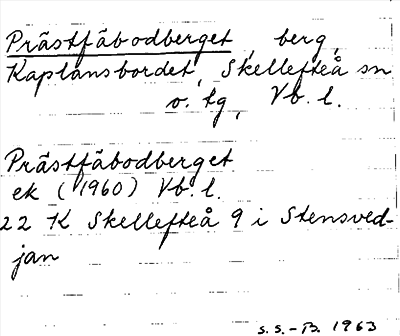 Prästfäbodberget, berg,
Kaplansbordet, Skellefteå sn
o. tg, Vb. l.
Prästfäbodberget
ek (1960) Vb. l.
22 K Skellefteå 9 i Stensved-
jan
S.S.-B. 1963